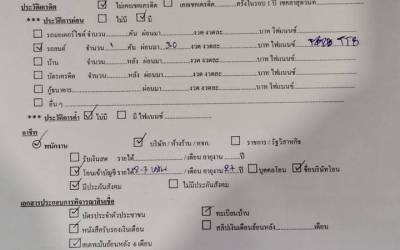 ประวัติเครดิต ไม่เคยขาดเครดิต ครั้งในรอบ 1 ปี
*** ประวัติการผ่อน ไม่มี มี
รถมอเตอร์ไซค์ จำนวน คัน ผ่อนมา งวด งวดละ บาท ไฟแนนซ์
รถยนต์ จำนวน 1 คัน ผ่อนมา 30 งวด งวดละ บาท ไฟแนนซ์ TTB
บ้าน จำนวน หลัง ผ่อนมา งวด งวดละ บาท ไฟแนนซ์
บัตรเครดิต จำนวน ผ่อนมา งวด งวดละ บาท ไฟแนนซ์
กู้ธนาคาร ผ่อนมา งวด งวดละ บาท ไฟแนนซ์
อื่น ๆ
*** ประวัติการค้ำ ไม่มี มี ไฟแนนซ์
อาชีพ
พนักงาน บริษัท / ห้างร้าน / หจก. ราชการ / รัฐวิสาหกิจ
รับเงินสด รายได้ /เดือน อายุงาน ปี
โอนเข้าบัญชี รายได้ /เดือน อายุงาน ปี บุคคลโอน ชื่อบริษัทโอน
มีประกันสังคม ไม่มีประกันสังคม
เอกสารประกอบการพิจารณาสินเชื่อ
บัตรประจำตัวประชาชน ทะเบียนบ้าน
หนังสือรับรองเงินเดือน สลิปเงินเดือนย้อนหลัง เดือน
สเตทเม้นย้อนหลัง 6 เดือน